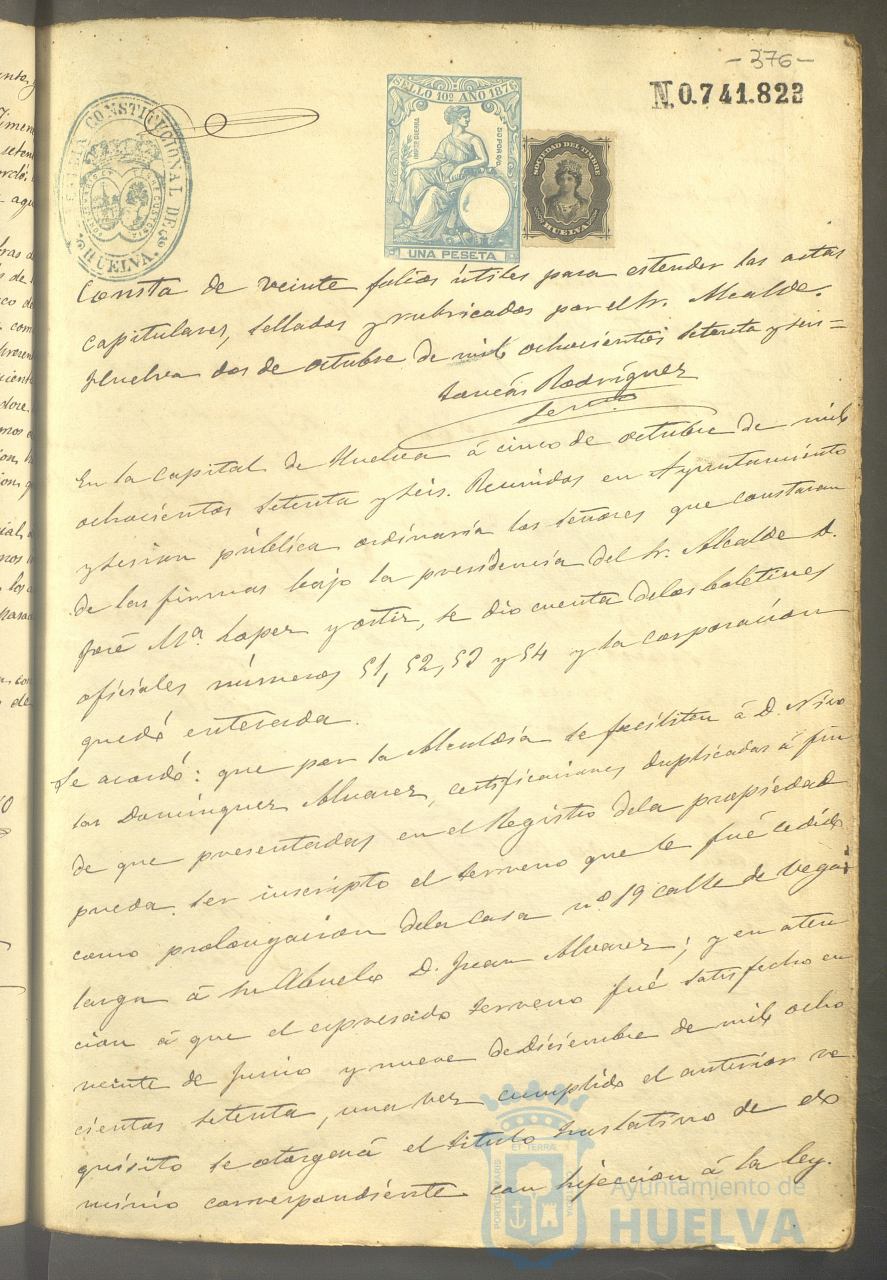 - 376 -
N.0.741.823
ALCALDIA CONSTITUCIONAL DE HUELVA.
SELLO 10º AÑO 1876
IMP. DE GUERRA
50 POR 100
UNA PESETA
SOCIEDAD DEL TIMBRE
HUELVA
Consta de veinte folios útiles para estender las actas
capitulares, sellados y rubricados por el Sr. Alcalde.
Huelva dos de octubre de mil ochocientos setenta y seis =
Rodríguez
Srio
En la Capital de Huelva á cinco de octubre de mil
ochocientos setenta y seis. Reunidos en Ayuntamiento
y sesion pública ordinaria los señores que constaran
de las firmas bajo la presidencia del Sr. Alcalde D.
José Mª. Lopez y ortiz, se dio cuenta delos boletines
oficiales números 51, 52, 53 y 54 y la corporacion
quedó enterada.
Se acordó: que por la Alcaldía se faciliten á D. Nico
las Dominguez Alvarez, certificaciones duplicadas á fin
de que presentadas en el Registro dela propiedad
pueda ser inscripto el terreno que le fué cedido
como prolongacion dela casa nº. 19 calle de Vega
larga á su Abuelo D. Juan Alvarez; y en aten
cion á que el espresado terreno fué satisfecho en
veinte de Junio y nueve dediciembre de mil ocho
cientos setenta, una vez cumplido el anterior re
quisito se otorgará el titulo traslativo de do
minio correspondiente con sujeccion á la ley.
PORTUS MARIS ET TERRAE CUSTODIA
Ayuntamiento de
HUELVA